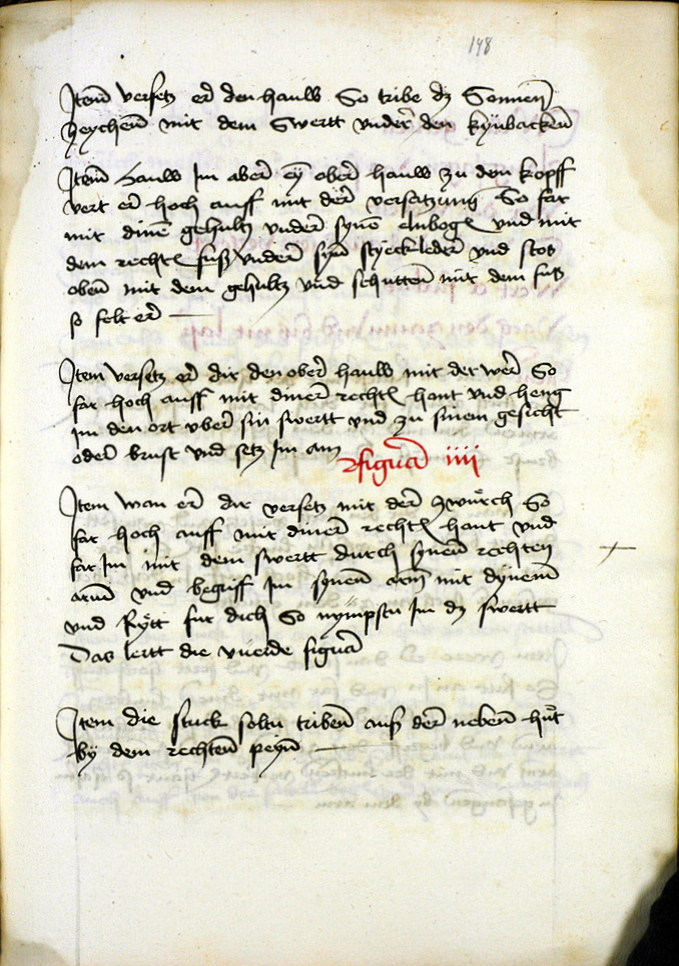 148
Item versetz er den hauw So tribe dz Sonnen
zeychen mit dem Swertt vnder den kynbacken
Item hauw Im aber ey ober hauw zu den kopff
vert er hoch auff mit der versatzung So far
mit dine gehultz vnder syne elnbogen vnd mit
dem rechten fuß vnder syn styeckleder vnd stos
oben mit dem gehultz vnd schutten mit dem fus
so felt er
Item versetz er dir den ober hauw mit der wer So
far hoch auff mit diner rechten hant vnd heng
im den ort vber sin swertt vnd zu sinem gesicht
oder brust vnd setz Im an
figura iiii
Item wan er dir versetz mit der zwürch So
far hoch auff mit diner rechten hant vnd
far Im mit dem swertt durch synen rechten
arm vnd begriff Im synen arm mit dynem
vnd Rytt fur dich So nympstu Im dz swertt
Das lertt die vierde figura
Item die stuck soltu triben auß der neben hut
by dem rechten peyn